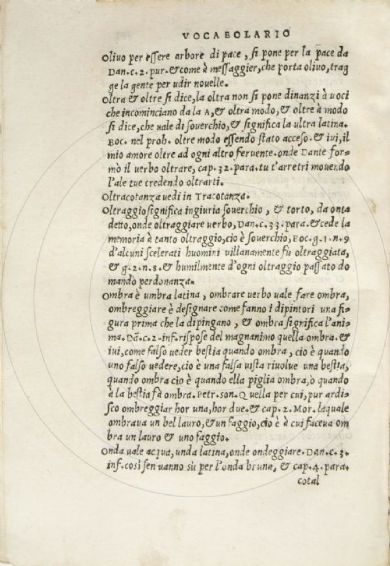 VOCABOLARIO
Oliuo per essere arbore di pace, si pone per la pace da
Dan.c.2.pur.& come à messaggier, che porta oliuo, trag
ge la gente per udir nouelle.
Oltra & oltre si dice, la oltra non si pone dinanzi à uoci
che incominciano da la A, & oltra modo, & oltre à modo
si dice, che uale di souerchio, & significa la ultra latina.
BOC. nel proh. oltre modo essendo stato acceso. & iui, il
mio amore oltre ad ogni altro feruente. onde Dante for
mò il uerbo oltrare, cap.32.para. tu t'arretri mouendo
l'ale tue credendo oltrarti.
Oltracotanza uedi in Tracotanza.
Oltraggio significa ingiuria souerchio, & torto, da onta
detto, onde oltraggiare uerbo, DAN.c.33.para.& cede la
memoria à tanto oltraggio, cio è souerchio, BOC.g.1.n.9
d'alcuni scelerati huomini uillanamente fù oltraggiata,
& g.2.n.8. & humilmente d'ogni oltraggio passato do
mandò perdonanza.
Ombra è umbra latina, ombrare uerbo uale fare ombra,
ombreggiare è designare come fanno i dipintori una fi
gura prima che la dipingano, & ombra significa l'ani-
ma. DA.c.2.inf. rispose del magnanimo quella ombra. &
iui, come falso ueder bestia quando ombra, cio è quando
uno falso uedere, cio è una falsa uista riuolue una bestia,
quando ombra cio è quando ella piglia ombra, ò quando
à la bestia fà ombra. Petr. son. Quella per cui, pur ardi-
sco ombreggiar hor una, hor due, & cap.2.Mor. laquale
ombraua un bel lauro, & un faggio, cio è à cui faceua om
bra un lauro e uno faggio.
Onda uale acqua, unda latina, onde ondeggiare. DAN.c.3.
inf. cosi sen uanno sù per l'onda bruna, & cap.4.para.
cotal